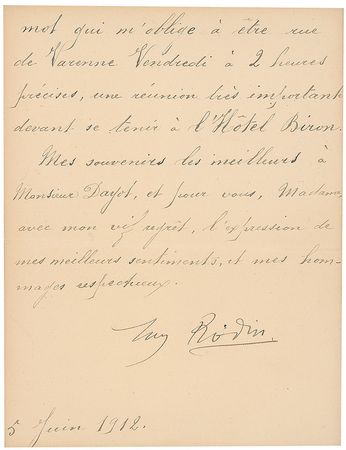 mot qui m'oblige à être rue
de Varenne Vendredi à 2 heures
précises, une réunion très importante
devant se tenir à l'Hôtel Biron.
Mes souvenirs les meilleurs à
Monsieur Dayot, et pour vous, Madame,
avec mon vif regrêt, l'expression de
mes meilleurs sentiments, et mes hom-
mages respectueux.
Aug Rodin.
5 Juin 1912.